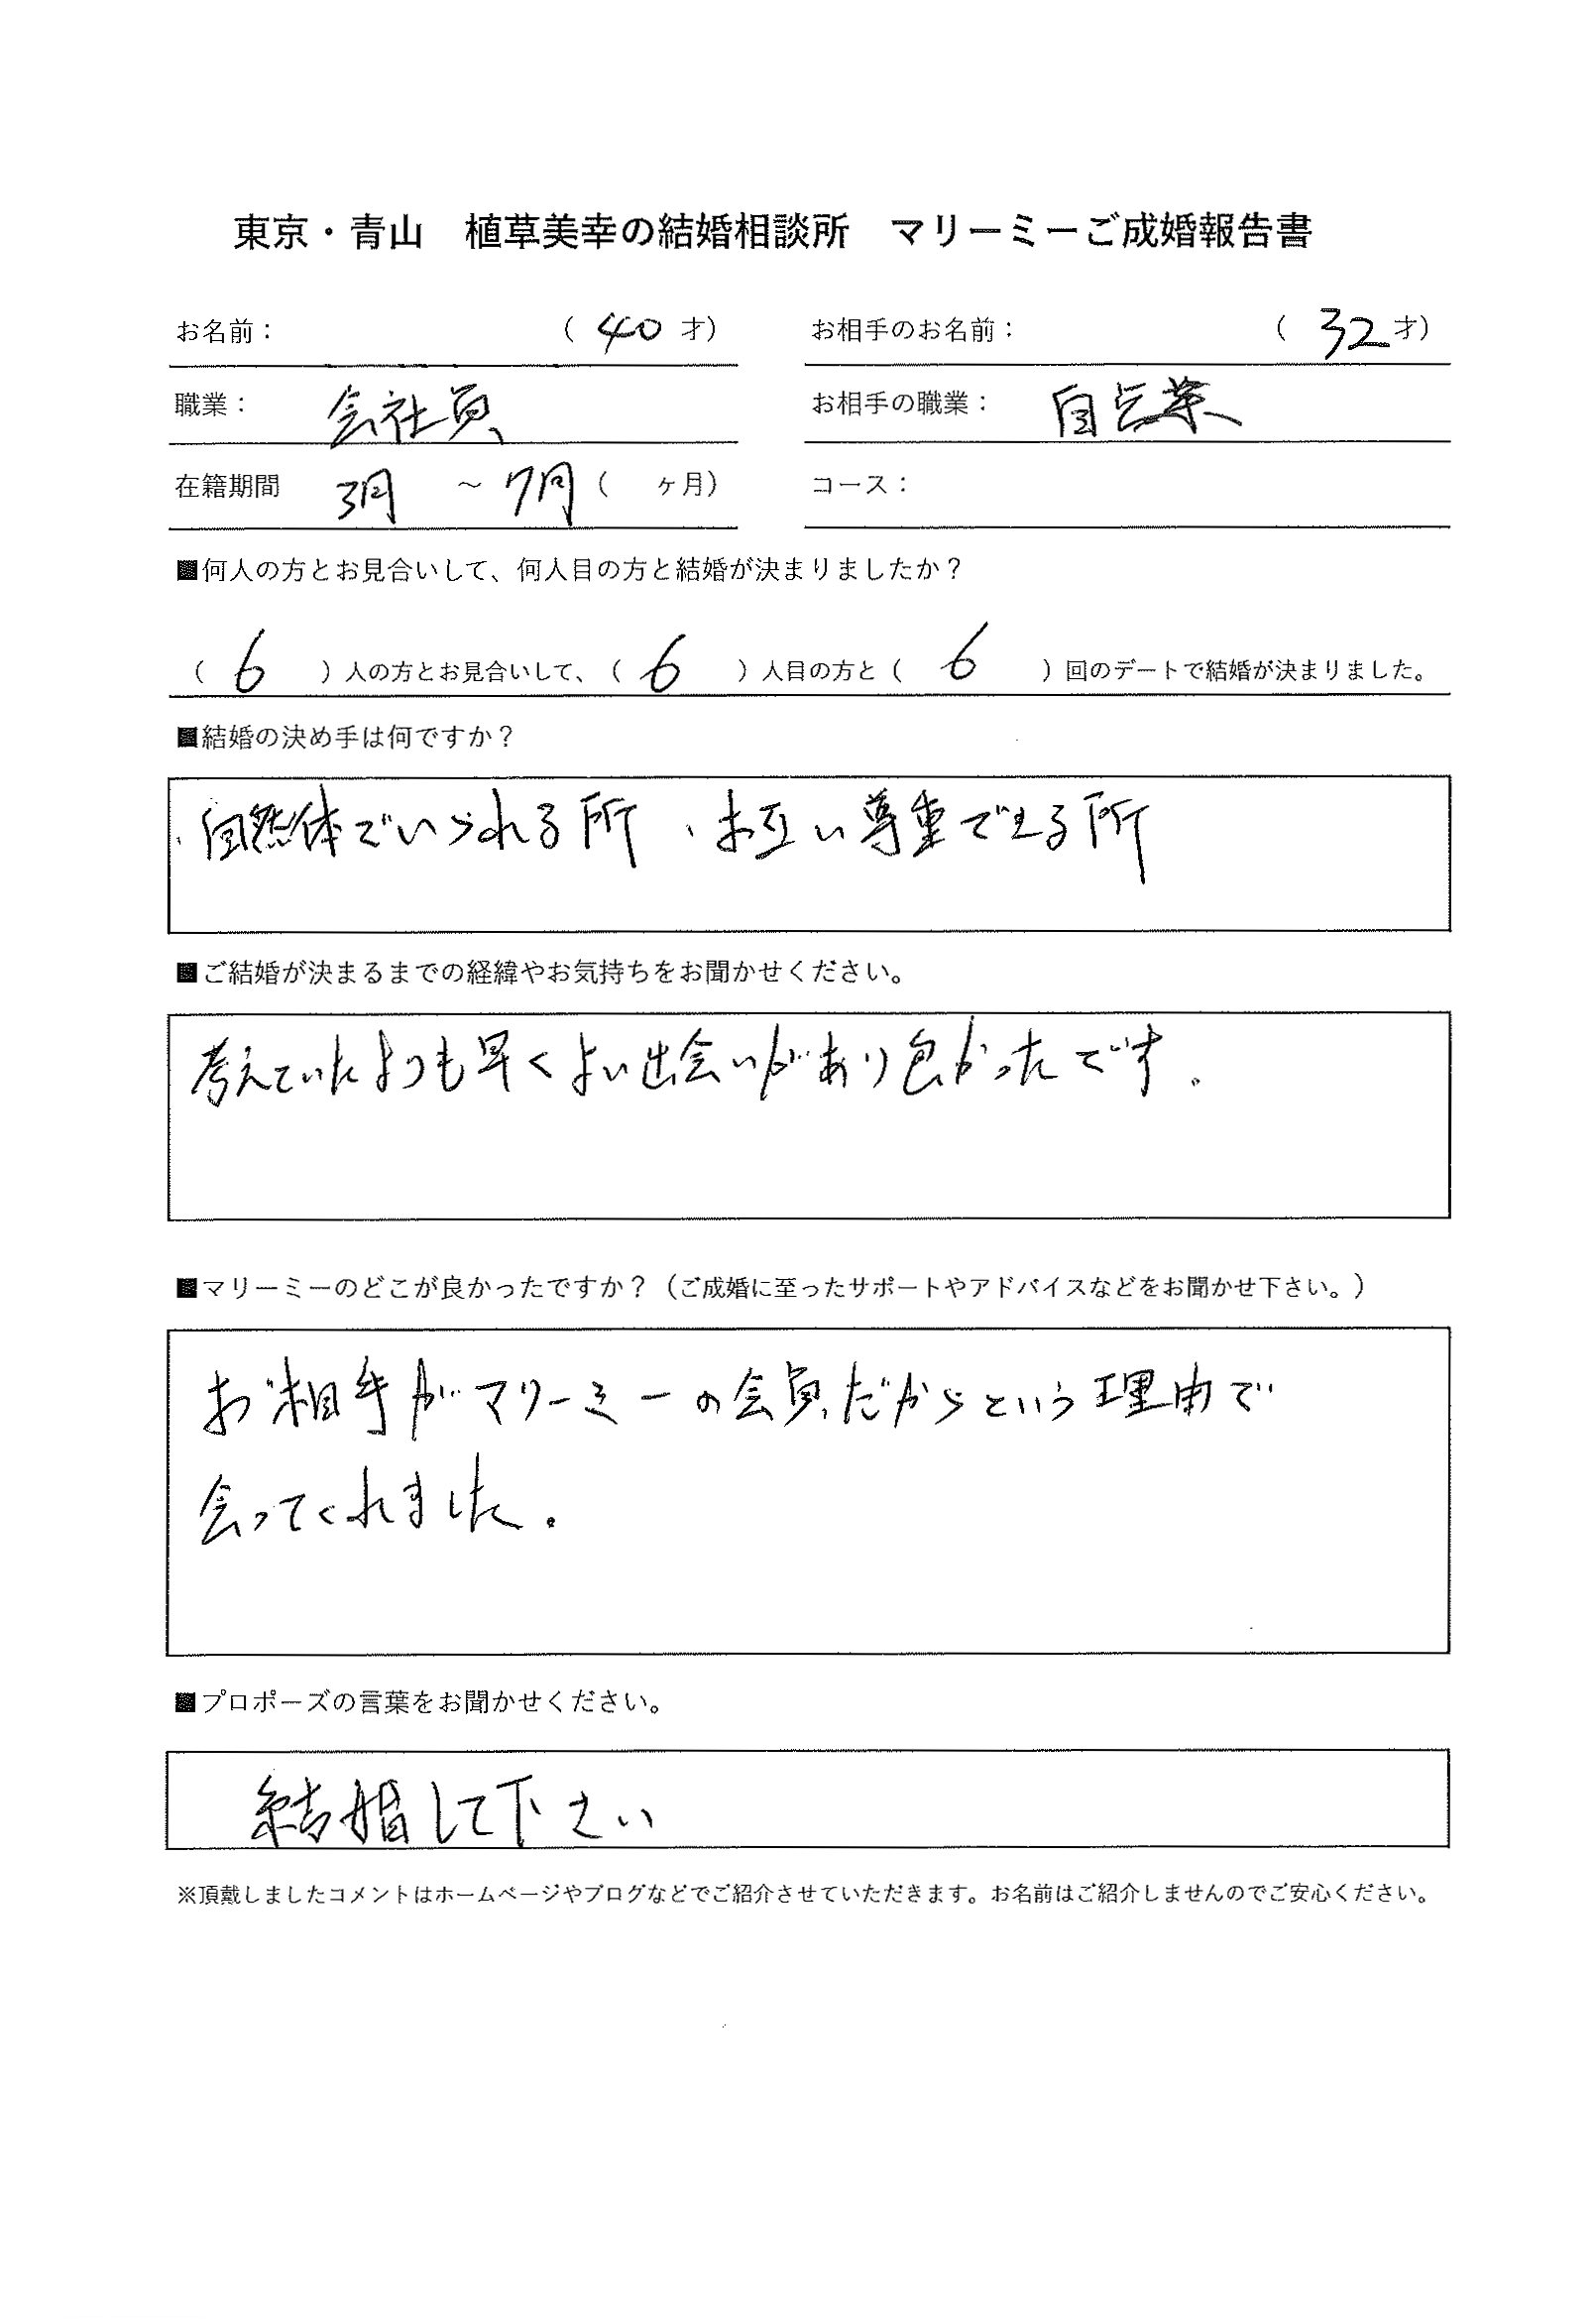 東京・青山　植草美幸の結婚相談所　マリーミーご成婚報告書
お名前：　（ 40 才）　お相手のお名前：　（ 32 才）
職業：　会社員　お相手の職業：　自営業
在籍期間　3月　～　7月（　ヶ月）　コース：
■何人の方とお見合いして、何人目の方と結婚が決まりましたか？
（ 6 ）人の方とお見合いして、（ 6 ）人目の方と（ 6 ）回のデートで結婚が決まりました。
■結婚の決め手は何ですか？
、自然体でいられる所　、お互い尊重できる所
■ご結婚が決まるまでの経緯やお気持ちをお聞かせください。
考えていたよりも早くよい出会いがあり良かったです。
■マリーミーのどこが良かったですか？（ご成婚に至ったサポートやアドバイスなどをお聞かせ下さい。）
お相手がマリーミーの会員だからという理由で
会ってくれました。
■プロポーズの言葉をお聞かせください。
結婚して下さい
※頂戴しましたコメントはホームページやブログなどでご紹介させていただきます。お名前はご紹介しませんのでご安心ください。